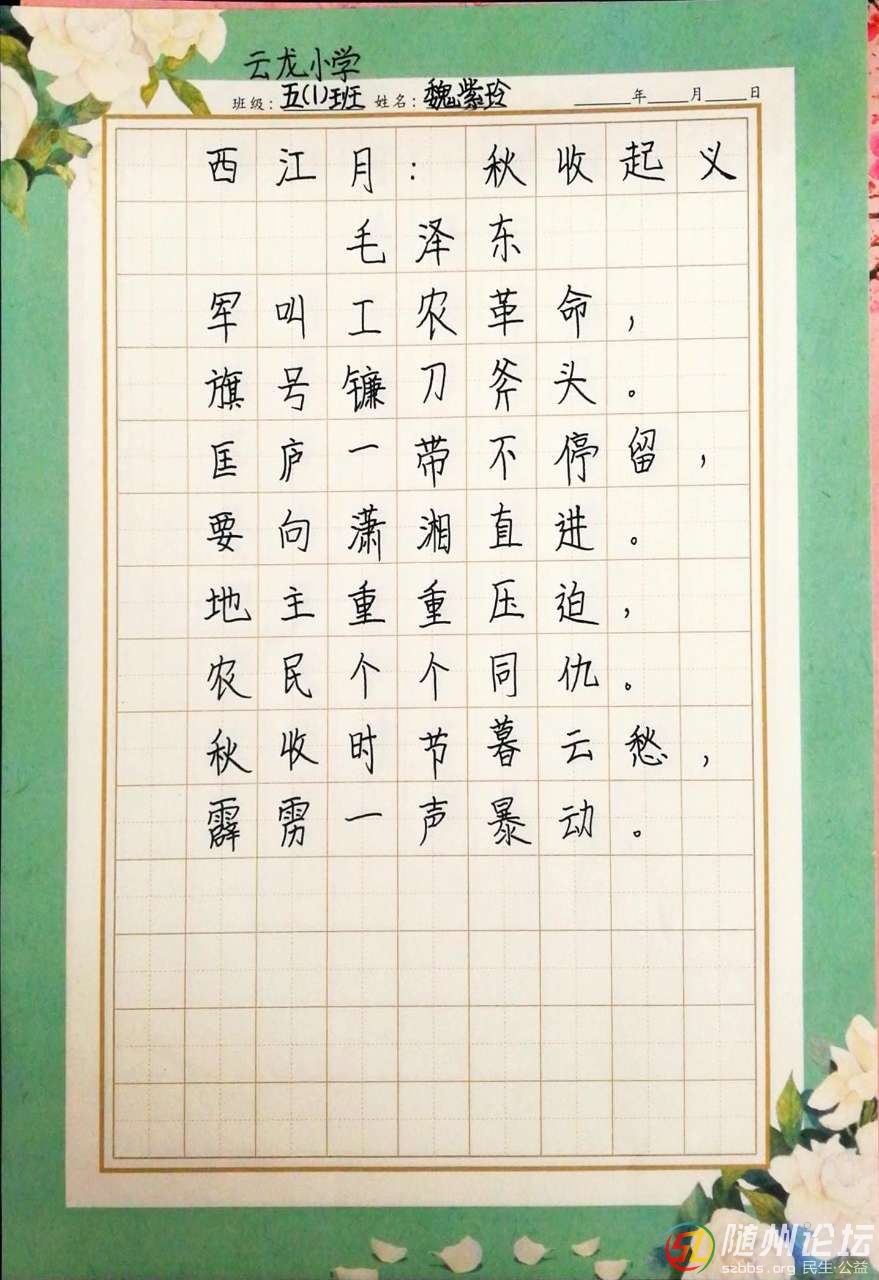 云龙小学
班级：五(1)班 姓名：魏紫玲 ____年____月____日
西江月：秋收起义
毛泽东
军叫工农革命，
旗号镰刀斧头。
匡庐一带不停留，
要向潇湘直进。
地主重重压迫，
农民个个同仇。
秋收时节暮云愁，
霹雳一声暴动。
随州论坛
szbbs.org 民生·公益